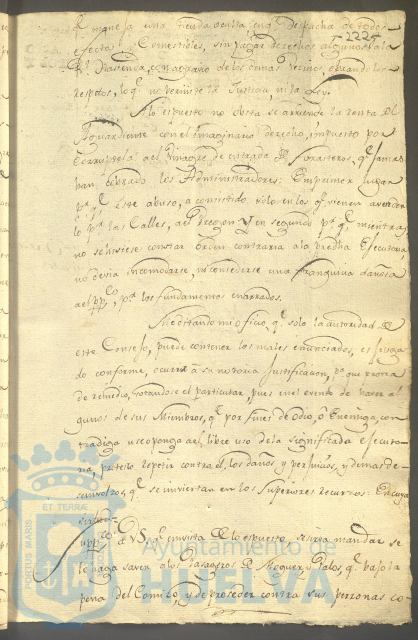 -222-
una tienda oculta, en q. despacha de todos
efectos, Comestibles, sin pagar derechos algunos á la
Rl. Hazienda, con agravio de los demas vecinos,
respetos, lo q. no permite la Justicia, ni la Ley.
Ni lo espuesto no obsta se arriende la renta del
Aguardiente con el imaginario derecho, impuesto por
del Vinagre, de entrada de forasteros, q. jamas
han cobrado los Administradores: En primer lugar
pr. q. Este abuso, a consistido solo en los q. vienen avender
lo pr. las Calles, al Pregon. Y en segundo pr. q. mientras
no se hiciese constar orden contraria á la predha. Executoria
no devia incomodarse, ni concederse una franquicia dañosa
al pp.co, pr. los fundamentos enarrados.
Meditando mi oficio, q. solo la autoridad de
este Consejo, puede contener los males enunciados, es
do conforme, ocurrir á su notoria Justificacion, pa. que provea
de remedio, tocandose el particular, pues en el evento de haver al
gunos de sus Miembros, q. por fines de odio, ó Enemiga, con
tradiga u se oponga al libre uso de la significada Executo
ria, protesto repetir contra él, los daños y perjuicios, y demas de
sembolsos, q. se inviertan en los Superiores recursos: En cuya
virtud
Supp.co á VS. q. en vista de lo espuesto, se sirva mandar se
le haga saver a los de Moguer, y Palos, q. bajo la
pena del Comiso, y de proceder contra sus personas co
PORTUS MARIS
ET TERRÆ
Ayuntamiento de
HUELVA